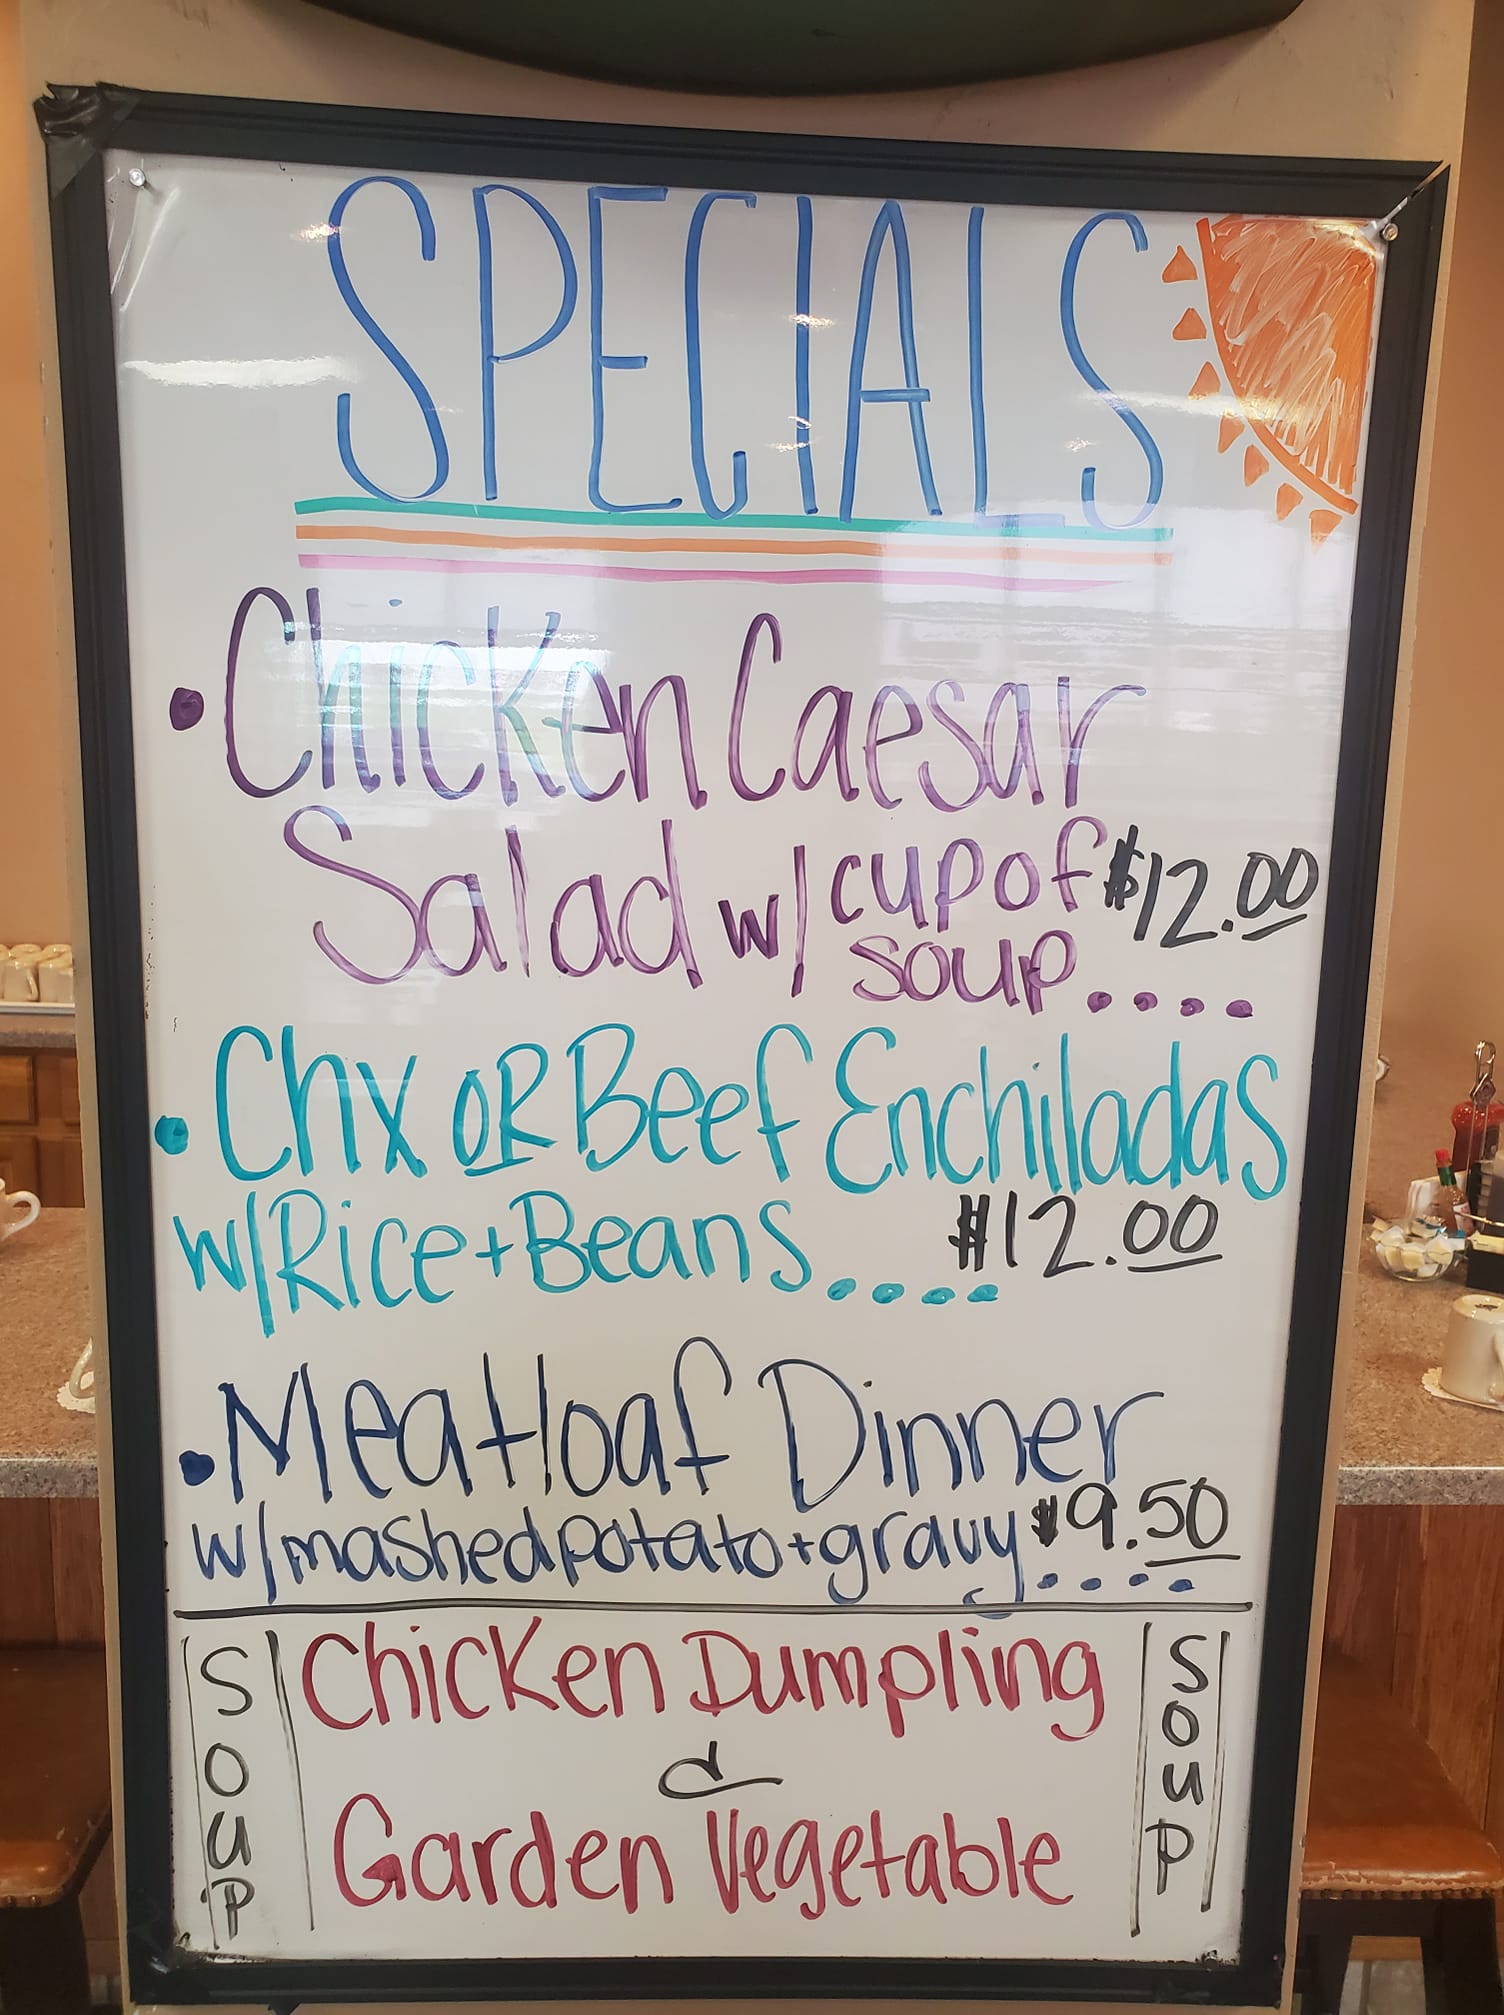 SPECIALS
• Chicken Caesar
Salad w/ cup of $12.00
soup....
• Chx OR Beef Enchiladas
w/Rice+Beans.... $12.00
• Meatloaf Dinner
w/mashed potato+gravy $9.50....
SOUP
Chicken Dumpling
&
Garden Vegetable
SOUP